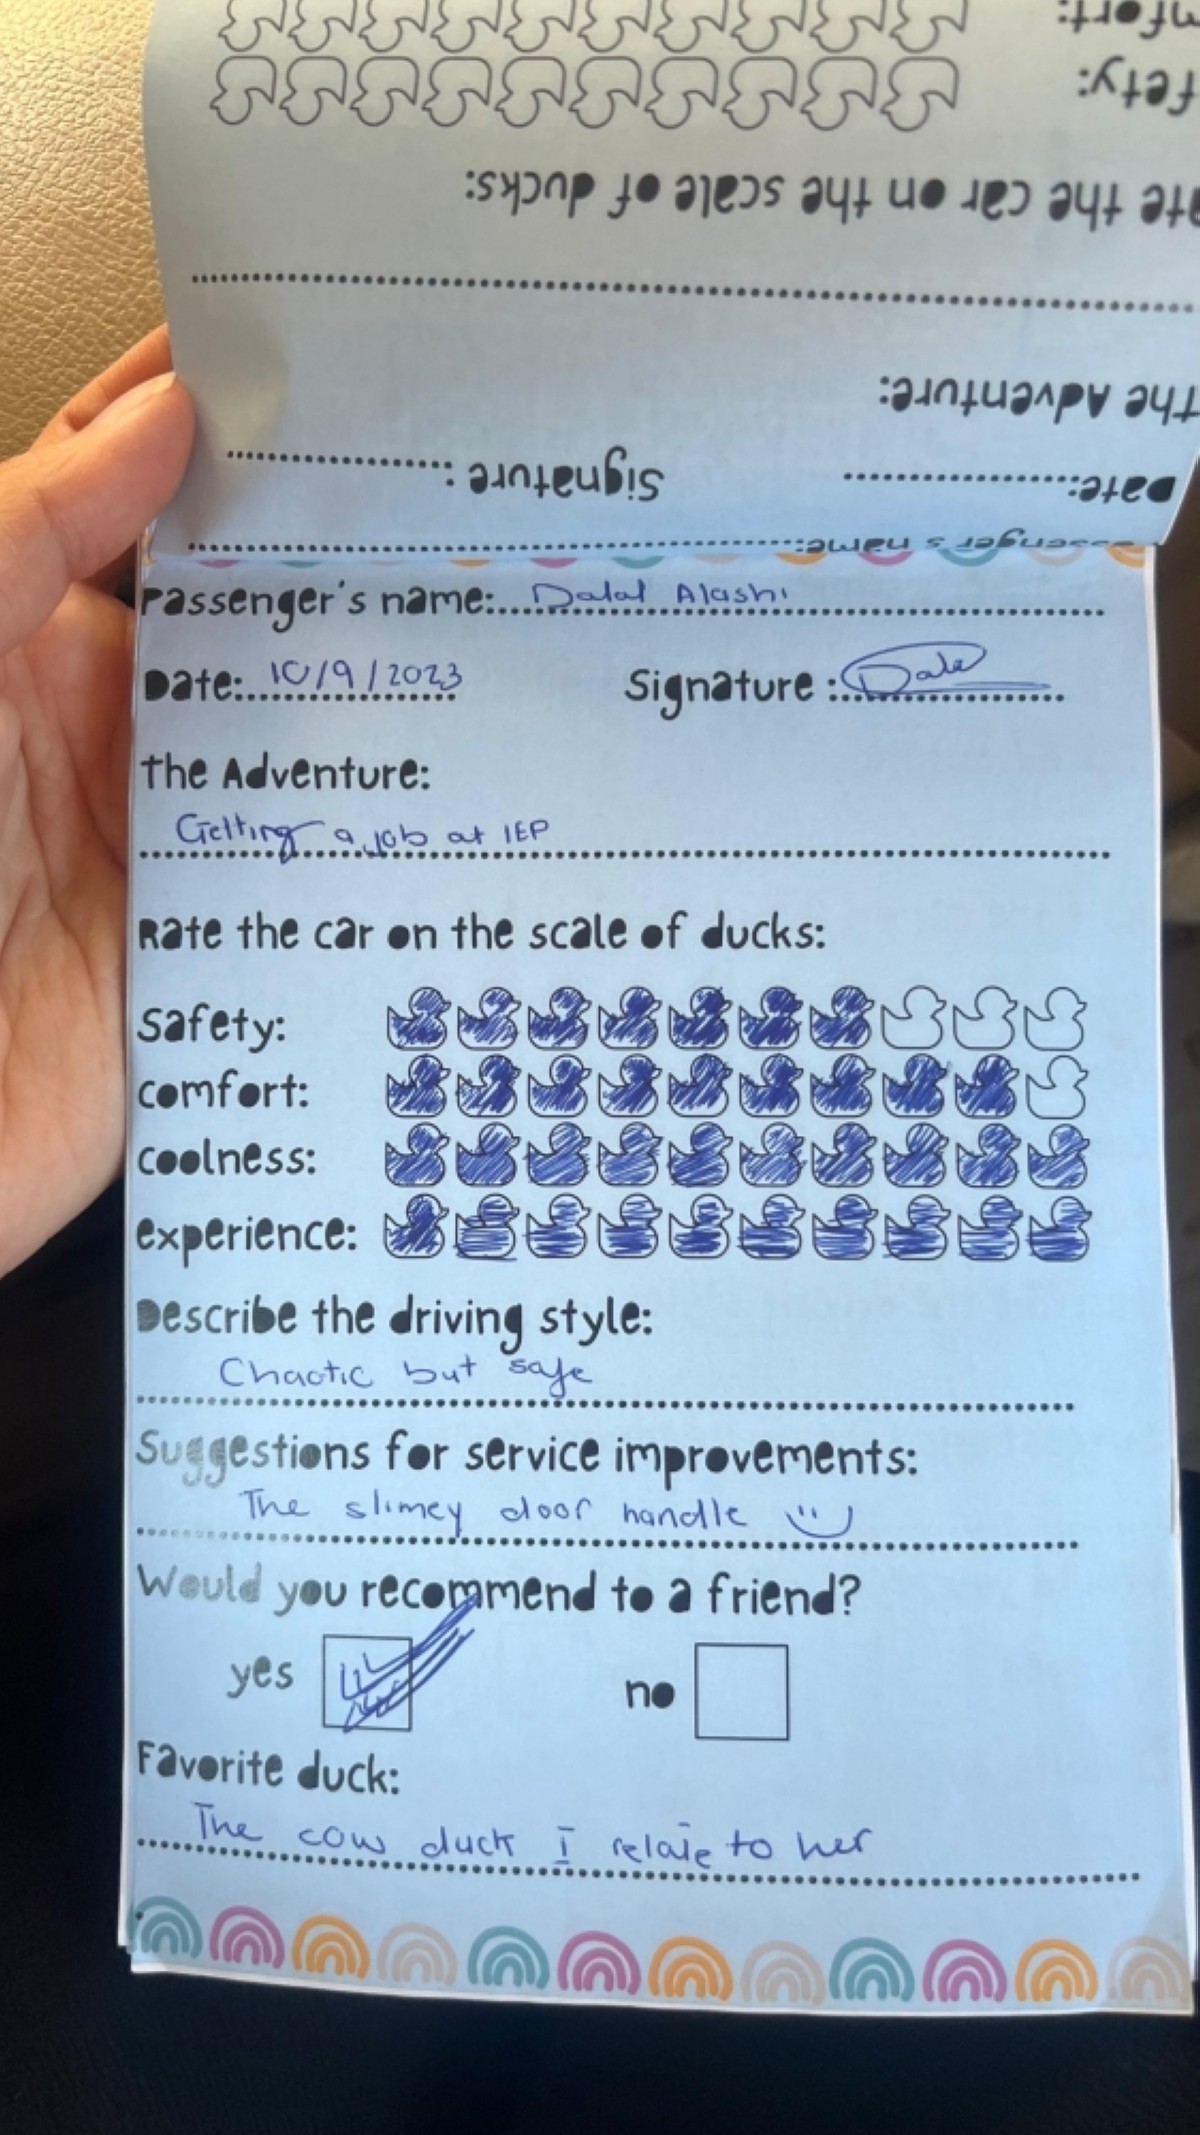 mfort:
fety:
ate the car on the scale of ducks:
The Adventure:
Date: Signature :
assenger's name:
Passenger's name: Dalal Alashi
Date: 10/9/2023 Signature : Dalal
The Adventure:
Getting a job at IEP
Rate the car on the scale of ducks:
Safety:
Comfort:
Coolness:
Experience:
Describe the driving style:
Chaotic but safe
Suggestions for service improvements:
The slimey door handle
Would you recommend to a friend?
yes no
Favorite duck:
The cow duck I relate to her